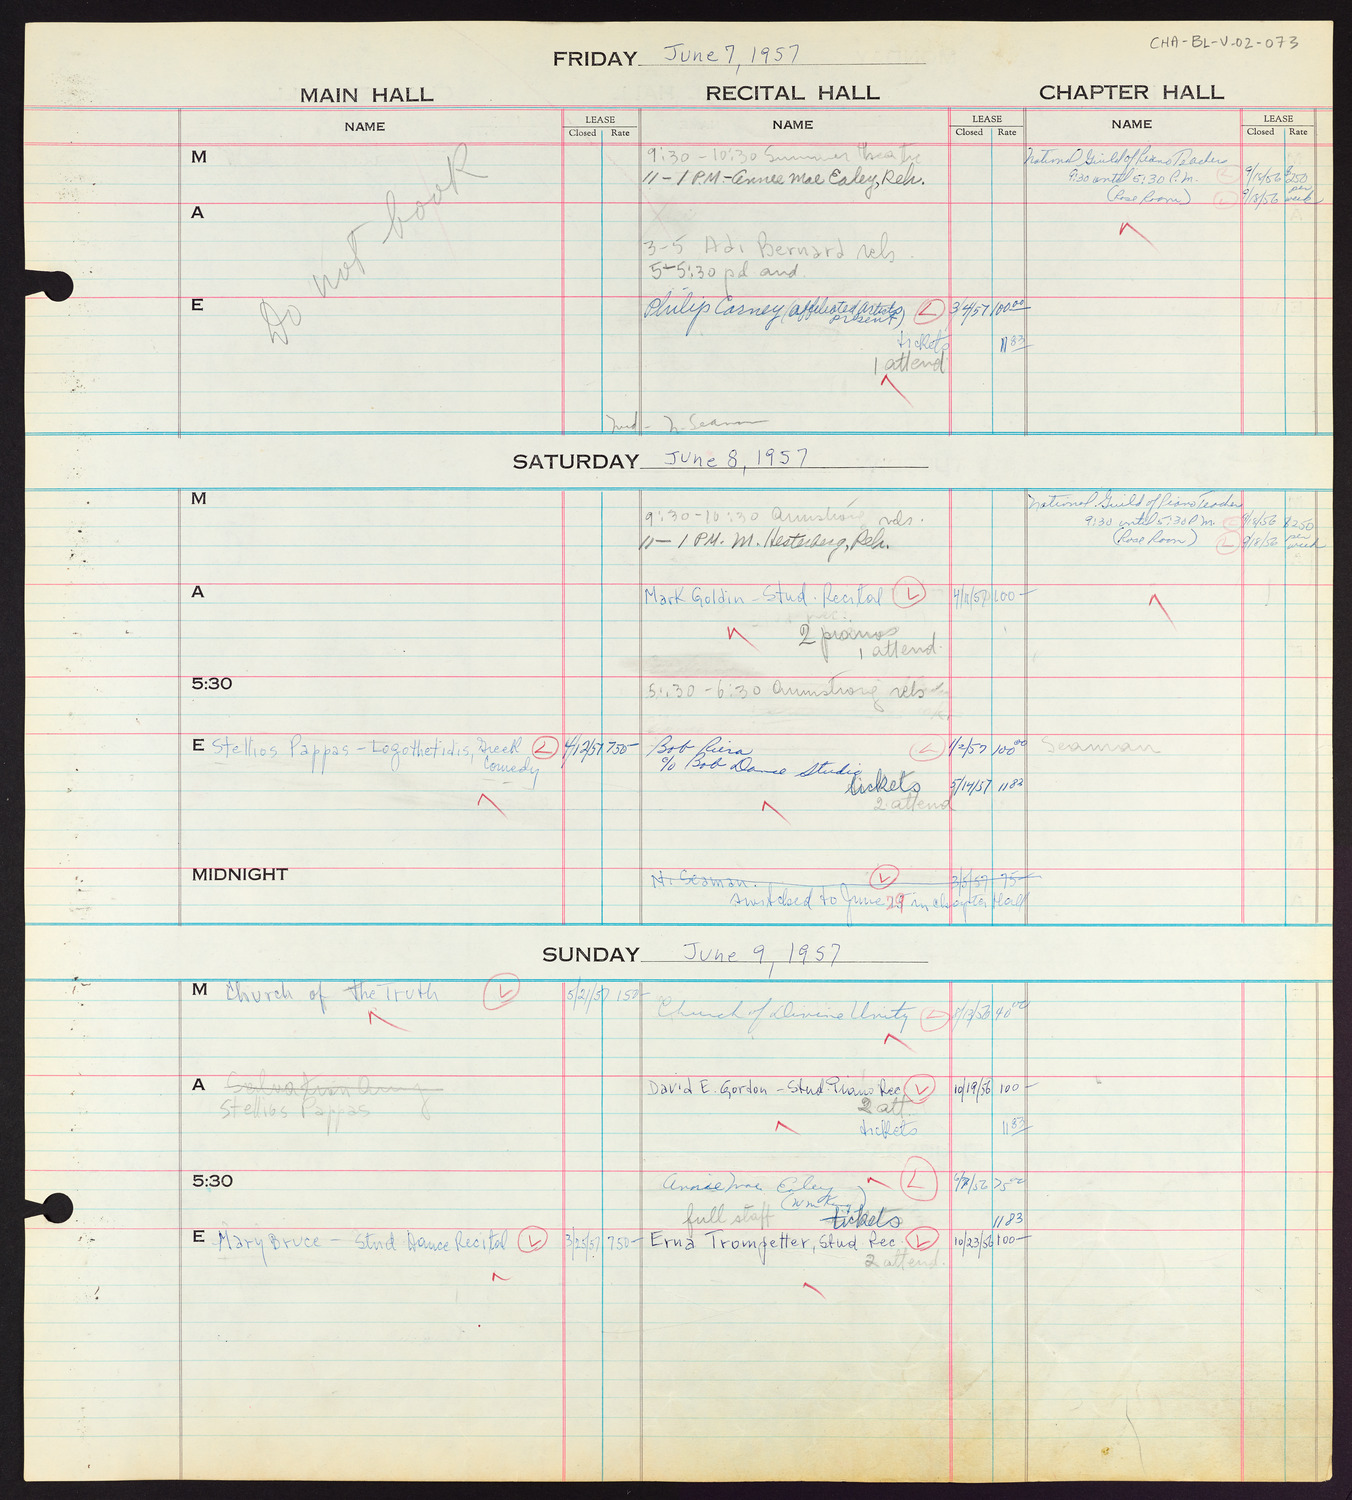 CHA-BL-V.02-073
FRIDAY June 7, 1957
MAIN HALL RECITAL HALL CHAPTER HALL
NAME LEASE Closed Rate NAME LEASE Closed Rate NAME LEASE Closed Rate
M
Do not book
9:30 - 10:30 Summer Theatre
11 - 1 P.M. - Annie Mae Ealey, Reh.
National Guild of Piano Teachers
9:30 until 5:30 P.M. L 9/18/56 $250
(Rose Room) L 9/18/56 per week
A
3-5 Adi Bernard rehs.
5-5:30 pd aud.
E
Philip Carney (affiliated artists L 3/4/57 100.00
present)
tickets 11 83
1 attend
Mid - N. Seaman
SATURDAY June 8, 1957
M
9:30 - 10:30 Armstrong rehs.
11 - 1 P.M. M. Hesterberg, Reh.
National Guild of Piano Teachers
9:30 until 5:30 P.M. L 9/18/56 $250
(Rose Room) L 9/18/56 per week
A
Mark Goldin - Stud. Recital L 4/11/57 100 -
2 pianos
1 attend.
5:30
5:30 - 6:30 Armstrong rehs
E Stellios Pappas - Logothetidis, Greek L 4/12/57 750 -
Comedy
Bob Riera L 1/2/57 100.00
c/o Bob Dance Studio
tickets 5/14/57 11 83
2 attend
Seaman
MIDNIGHT
N. Seaman. L 3/5/57 75 -
switched to June 29 in Chapter Hall
SUNDAY June 9, 1957
M Church of the Truth L 5/21/57 150 -
Church of Divine Unity L 8/13/56 40.00
A Salvation Army
Stellios Pappas
David E. Gordon - Stud. Piano Rec. L 10/19/56 100 -
2 att.
tickets 11 83
5:30
Annie Mae Ealey L 75.00
full staff tickets 11 83
E Mary Bruce - Stud Dance Recital L 3/25/57 750 -
Erna Trompetter, Stud Rec. L 10/23/56 100 -
2 attend.